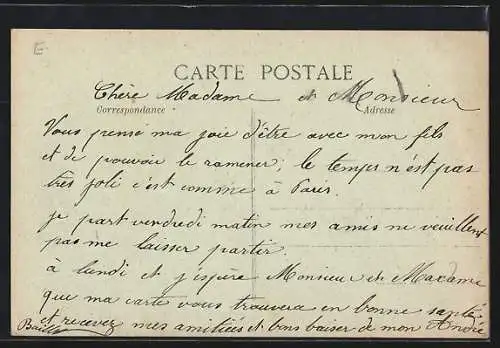 E
CARTE POSTALE
Chère Madame et Monsieur
Correspondance Adresse
Vous pensé ma joie d'être avec mon fils
et de pouvoir le ramener, le temps n'est pas
très joli c'est comme à Paris.
je part vendredi matin mes amis ne veuillent
pas me laisser partir.
à lundi et j'espère Monsieur et Madame
que ma carte vous trouvera en bonne santé
et recevez mes amitiées et bons baiser de mon André